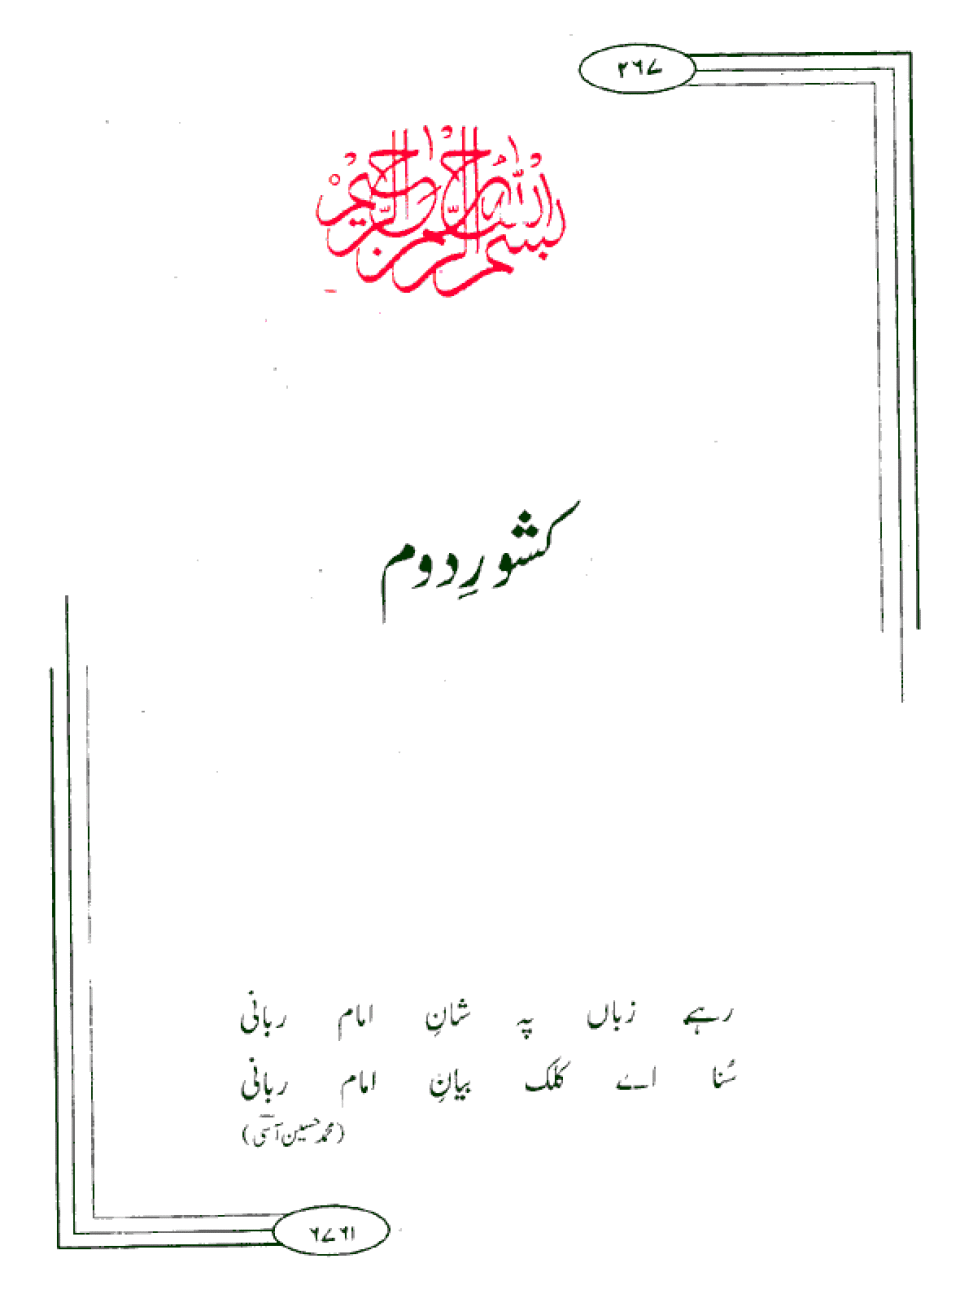 ۲۶۷
بسم الله الرحمن الرحيم
کشورِ دوم
رہے زباں پہ شانِ امام ربانی
سُنا اے کلک بیانِ امام ربانی
(محمد حسین آسی)
۶۷۶۱